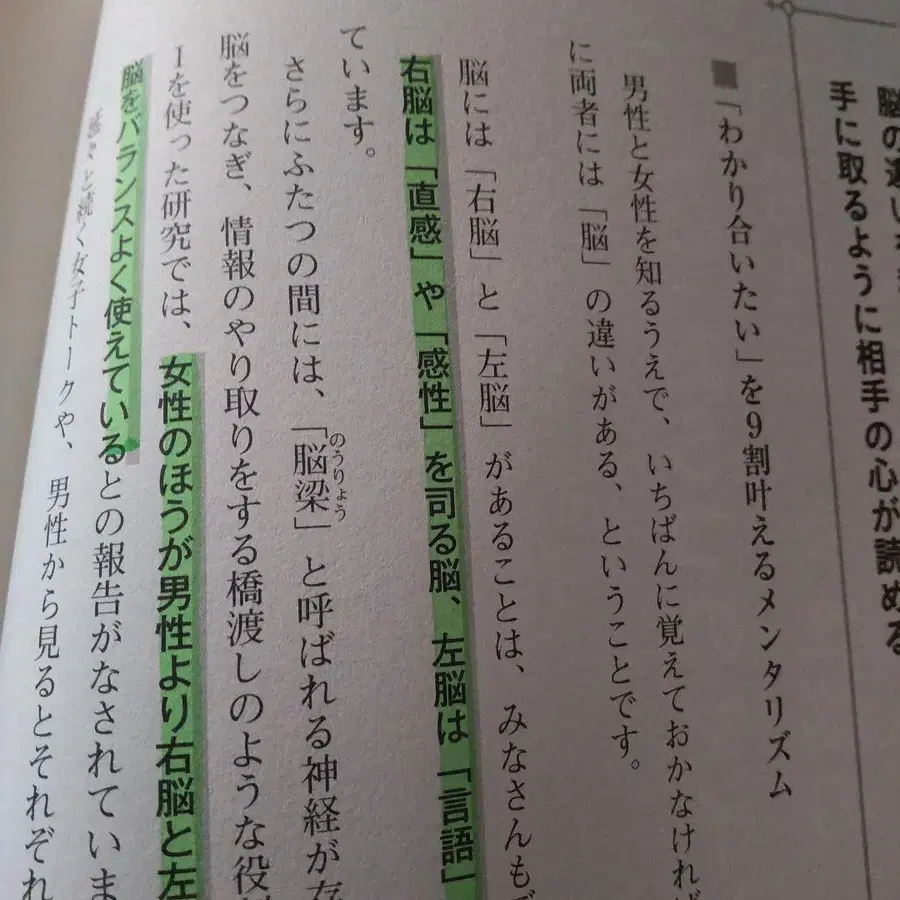 脳の違いを
手に取るように相手の心が読める
■「わかり合いたい」を9割叶えるメンタリズム
男性と女性を知るうえで、いちばんに覚えておかなければ
に両者には「脳」の違いがある、ということです。
脳には「右脳」と「左脳」があることは、みなさんもご
右脳は「直感」や「感性」を司る脳、左脳は「言語」
ています。
さらにふたつの間には、「脳梁」と呼ばれる神経が存
のうりょう
脳をつなぎ、情報のやり取りをする橋渡しのような役
Iを使った研究では、女性のほうが男性より右脳と左
脳をバランスよく使えているとの報告がなされていま
延々と続く女子トークや、男性から見るとそれぞれ